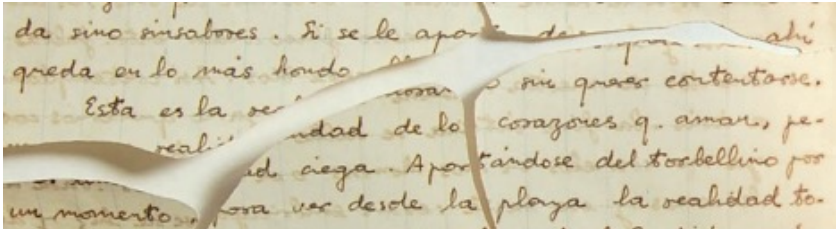 da sino sinsabores. Si se le apar de ahí
queda en lo más hondo sin querer contentarse.
Esta es la rea
reali idad de lo corazones q. aman, pe-
ad ciega. Apartándose del torbellino por
un momento, para ver desde la playa la realidad to-